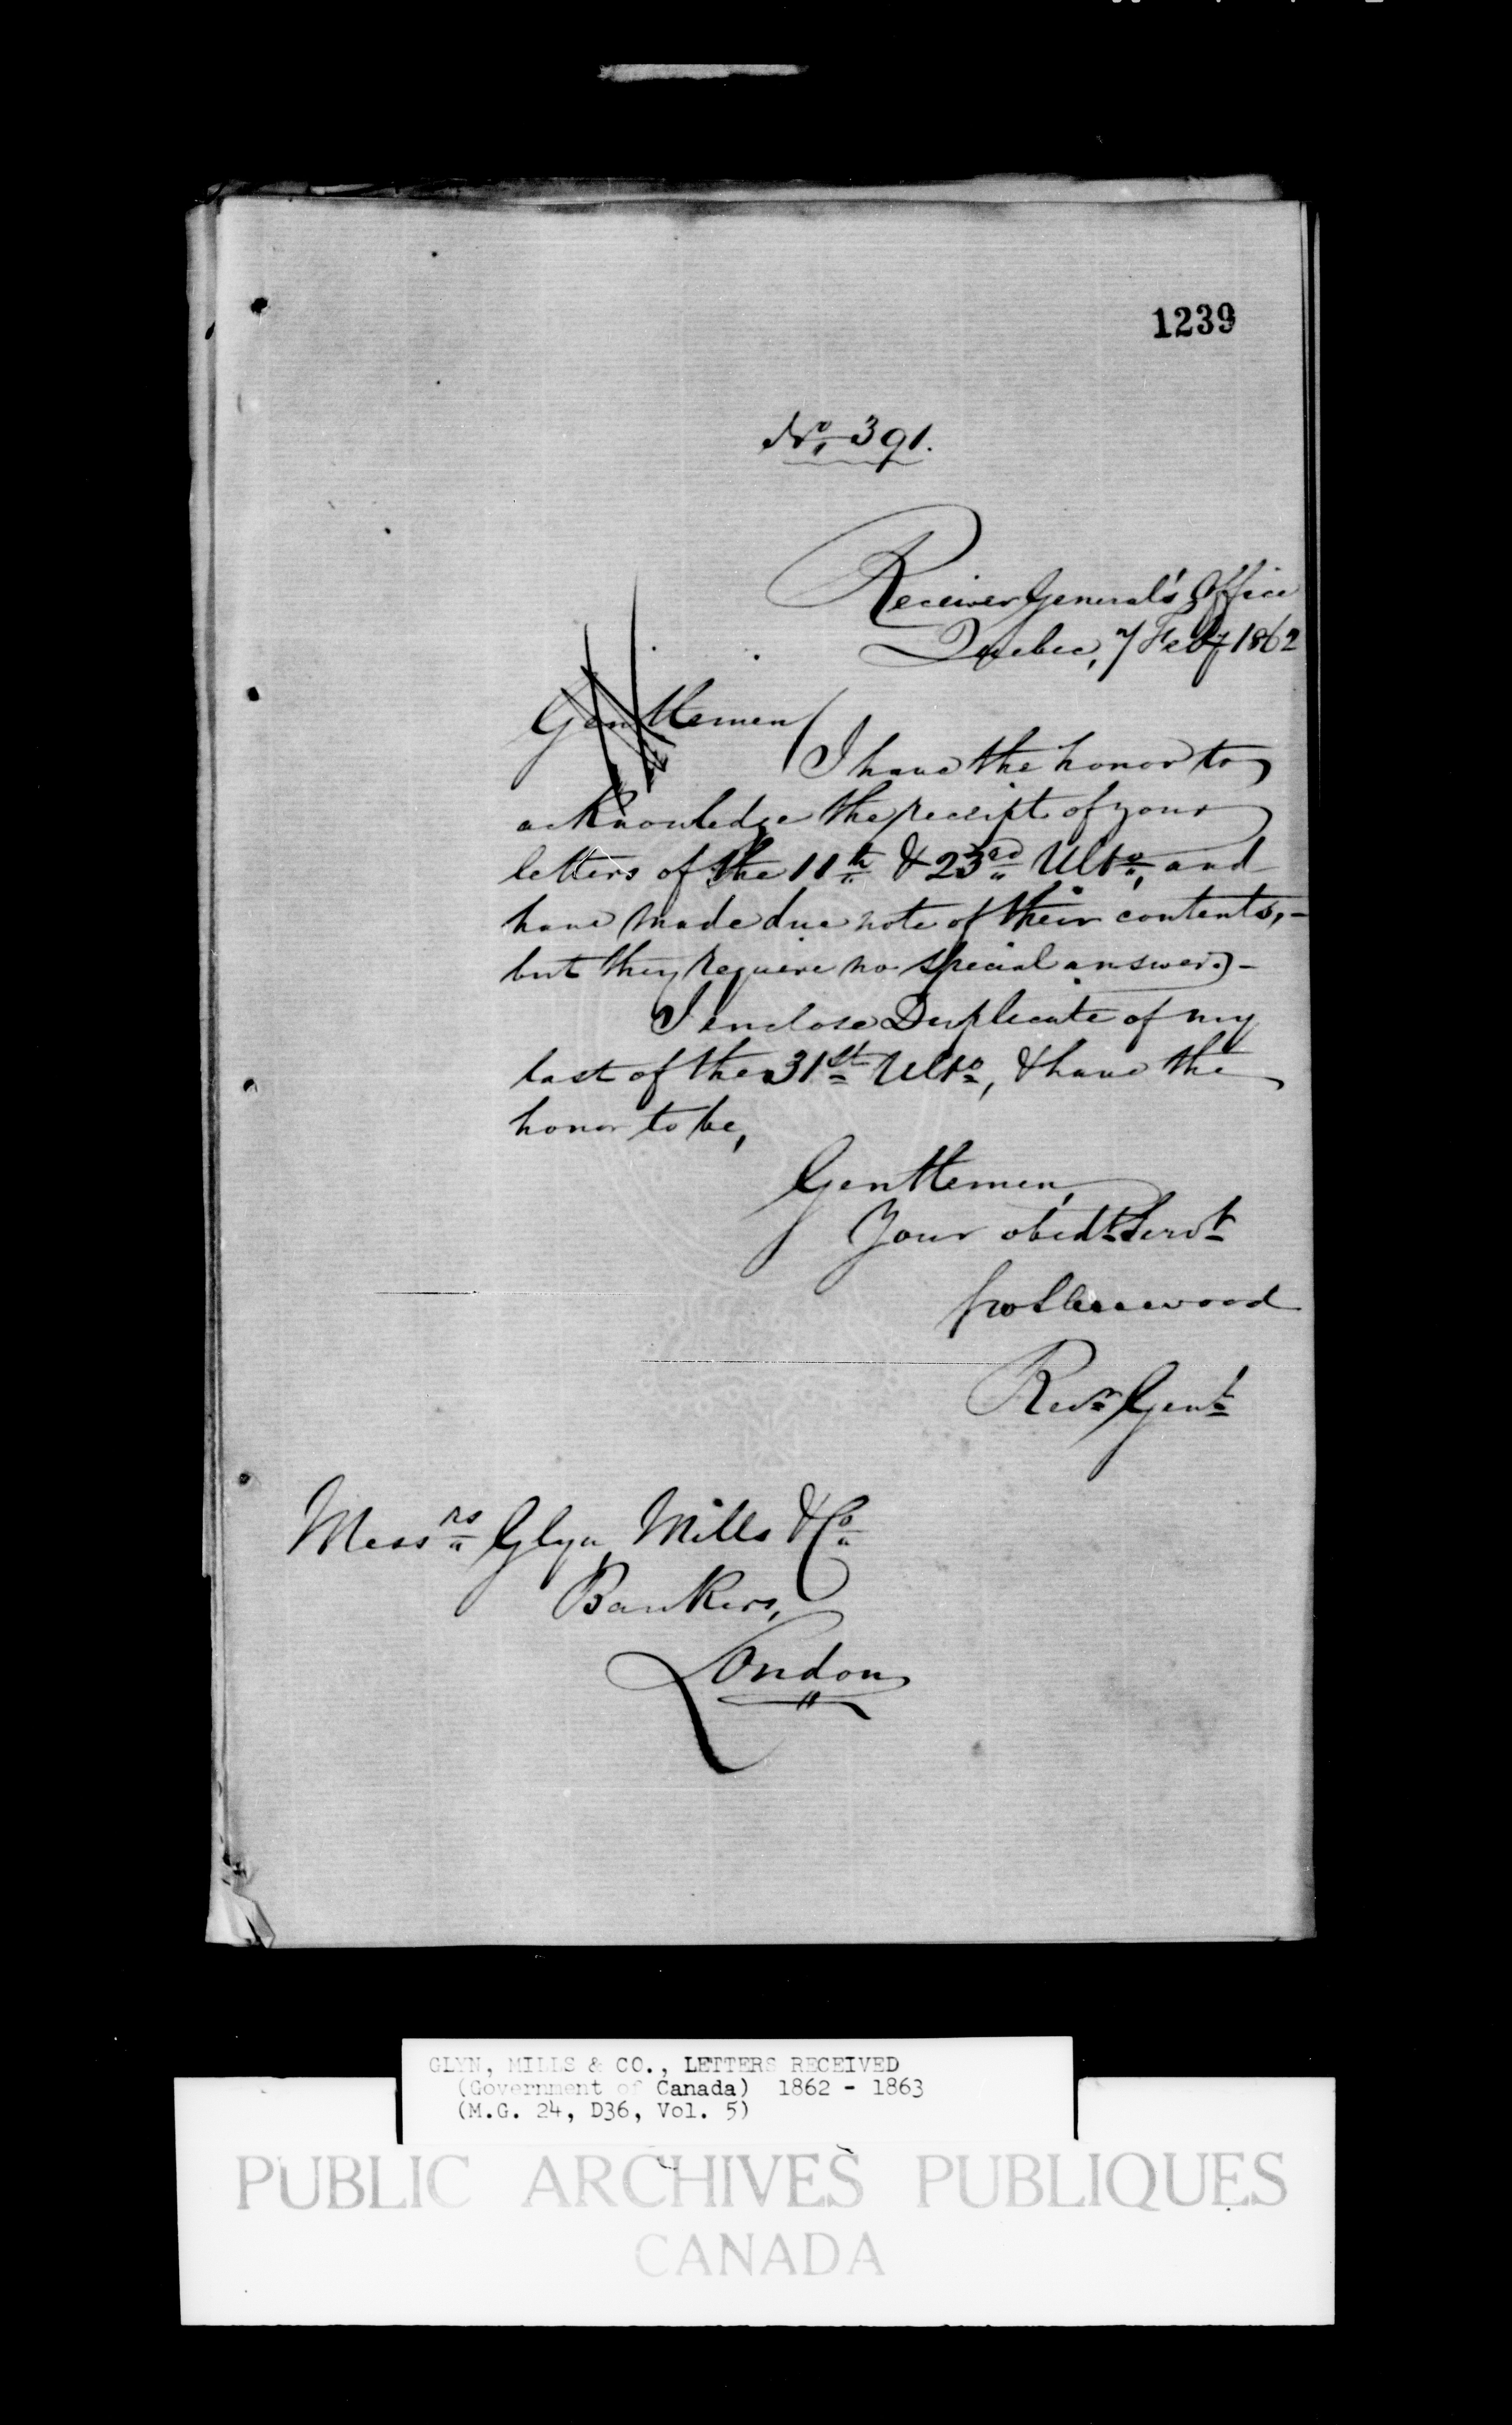 1239
No. 391.
Receiver General's Office
Quebec, 7 Feby 1862
Gentlemen
I have the honor to
acknowledge the receipt of your
letters of the 11th & 23rd Ulto, and
have made due note of their contents,-
but they require no special answer.-
I enclose Duplicate of my
last of the 31st Ulto, & have the
honor to be,
Gentlemen,
Your obedt Servt
Recr Genl
Messrs Glyn, Mills & Co
Bankers,
London
GLYN, MILLS & CO., LETTERS RECEIVED
(Government of Canada) 1862 - 1863
(M.G. 24, D36, Vol. 5)
PUBLIC ARCHIVES PUBLIQUES
CANADA